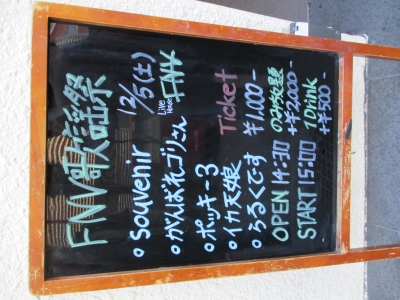 FNV歌謡祭
12/5(土)
Live House FNV
• Souvenir
• がんばれゴリさん
• ポッキー3
• イカ天娘
• うるくです
Ticket
¥1,000-
OPEN 14:30
START 15:00
のみ放題
+¥2,000-
1Drink
+¥500-